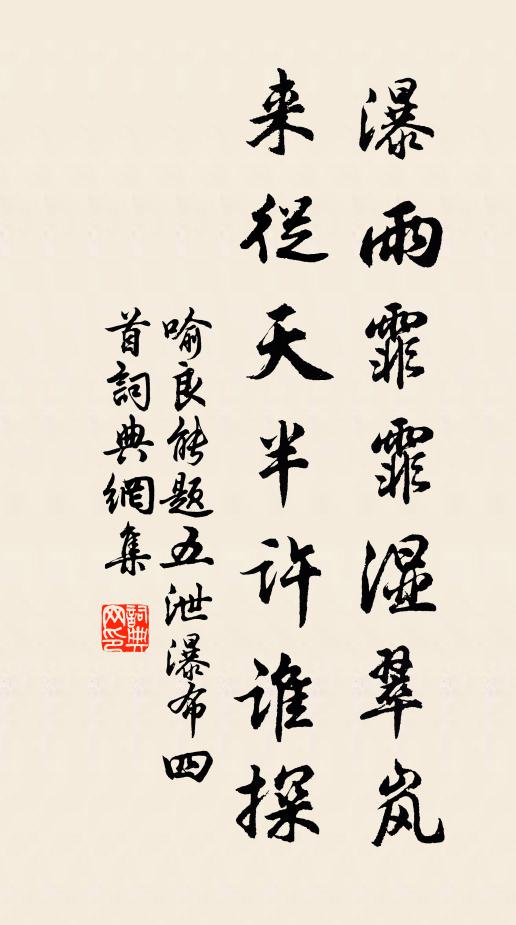 瀑雨霏霏湿翠岚
来從天半许谁探
喻良能题五泄瀑布四
首詞典網集
詞典
网印